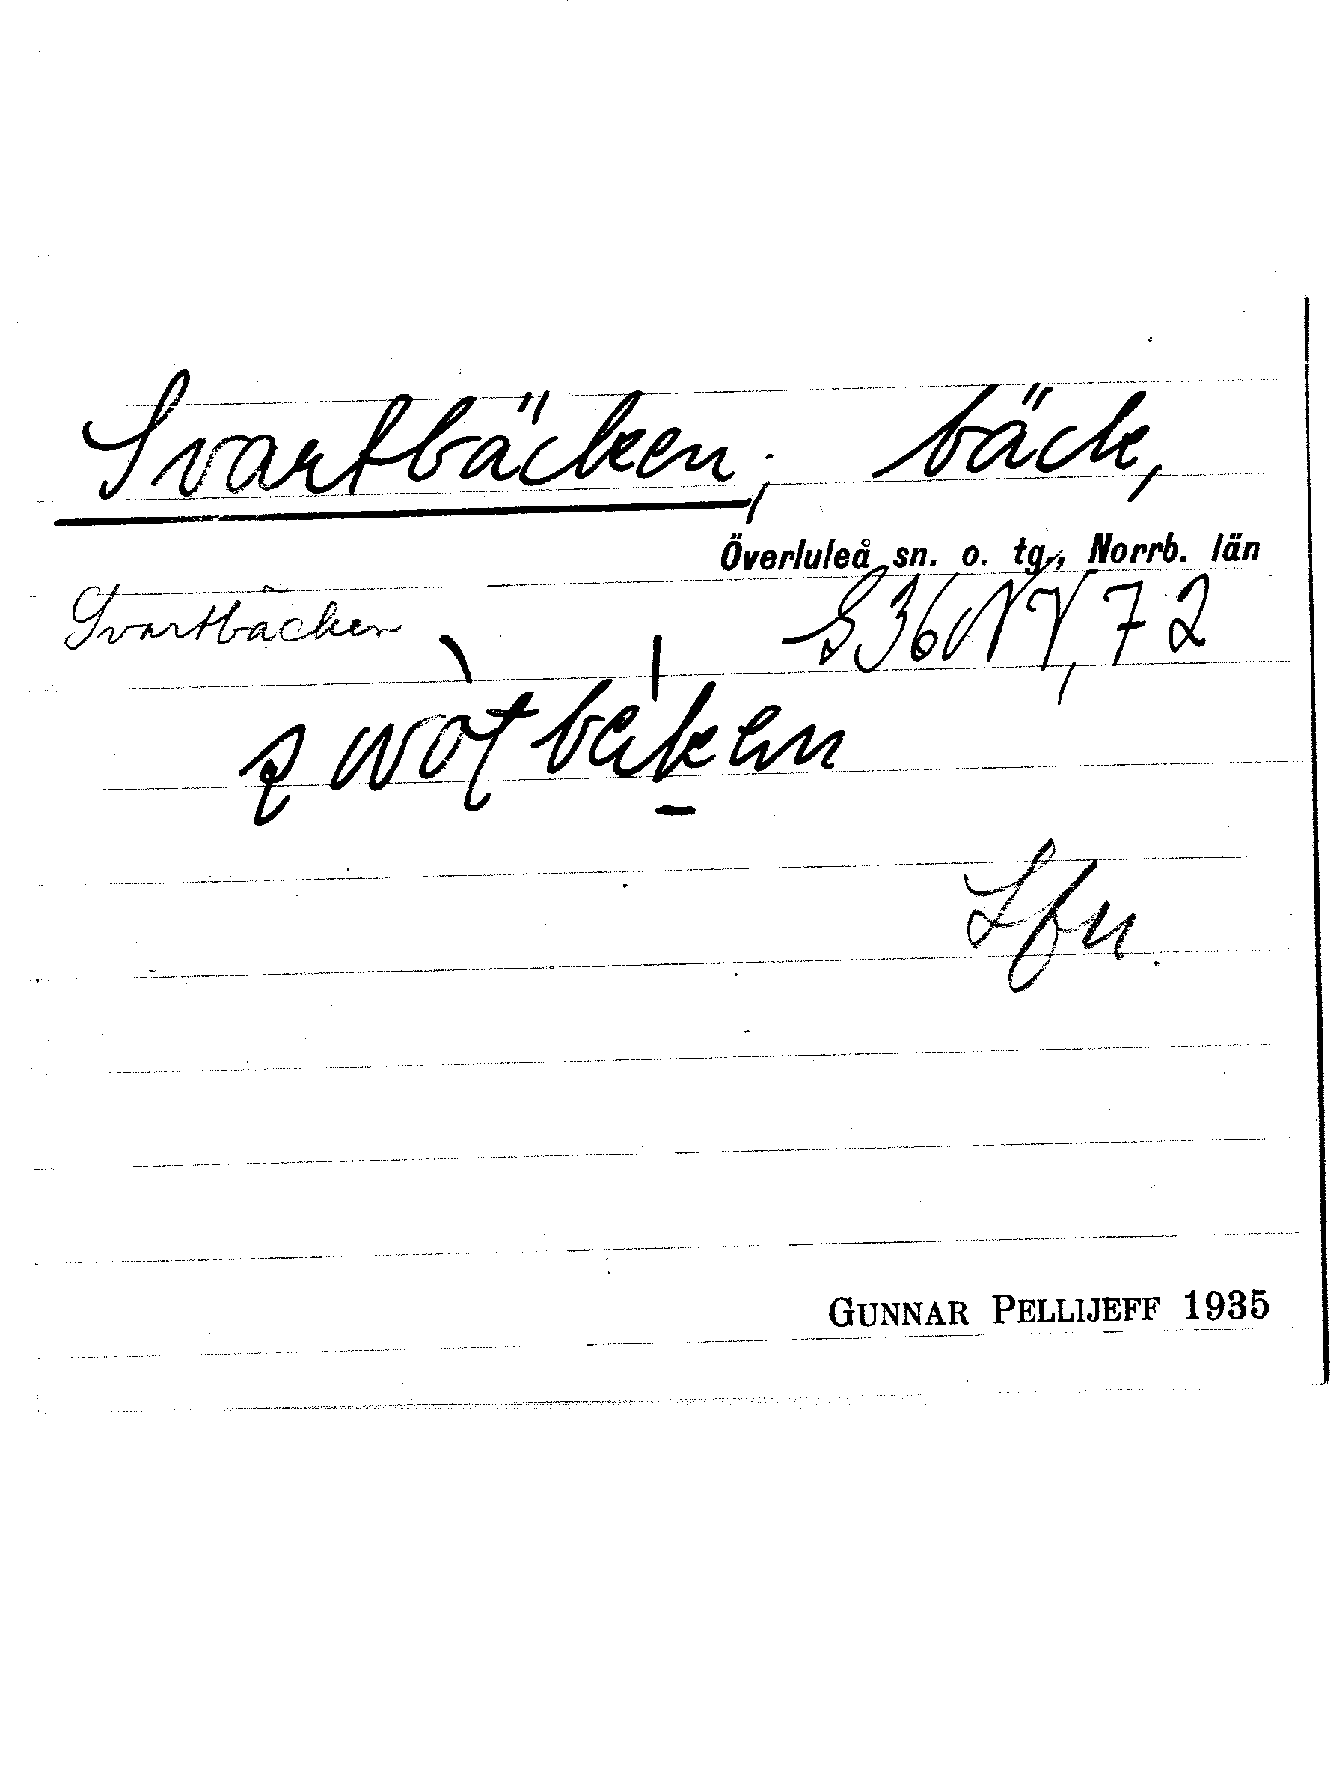 Svartbäcken, bäck,
Överluleå sn. o. tg., Norrb. län
Svartbäcken
S36NV, 72
Sfn.
GUNNAR PELLIJEFF 1935